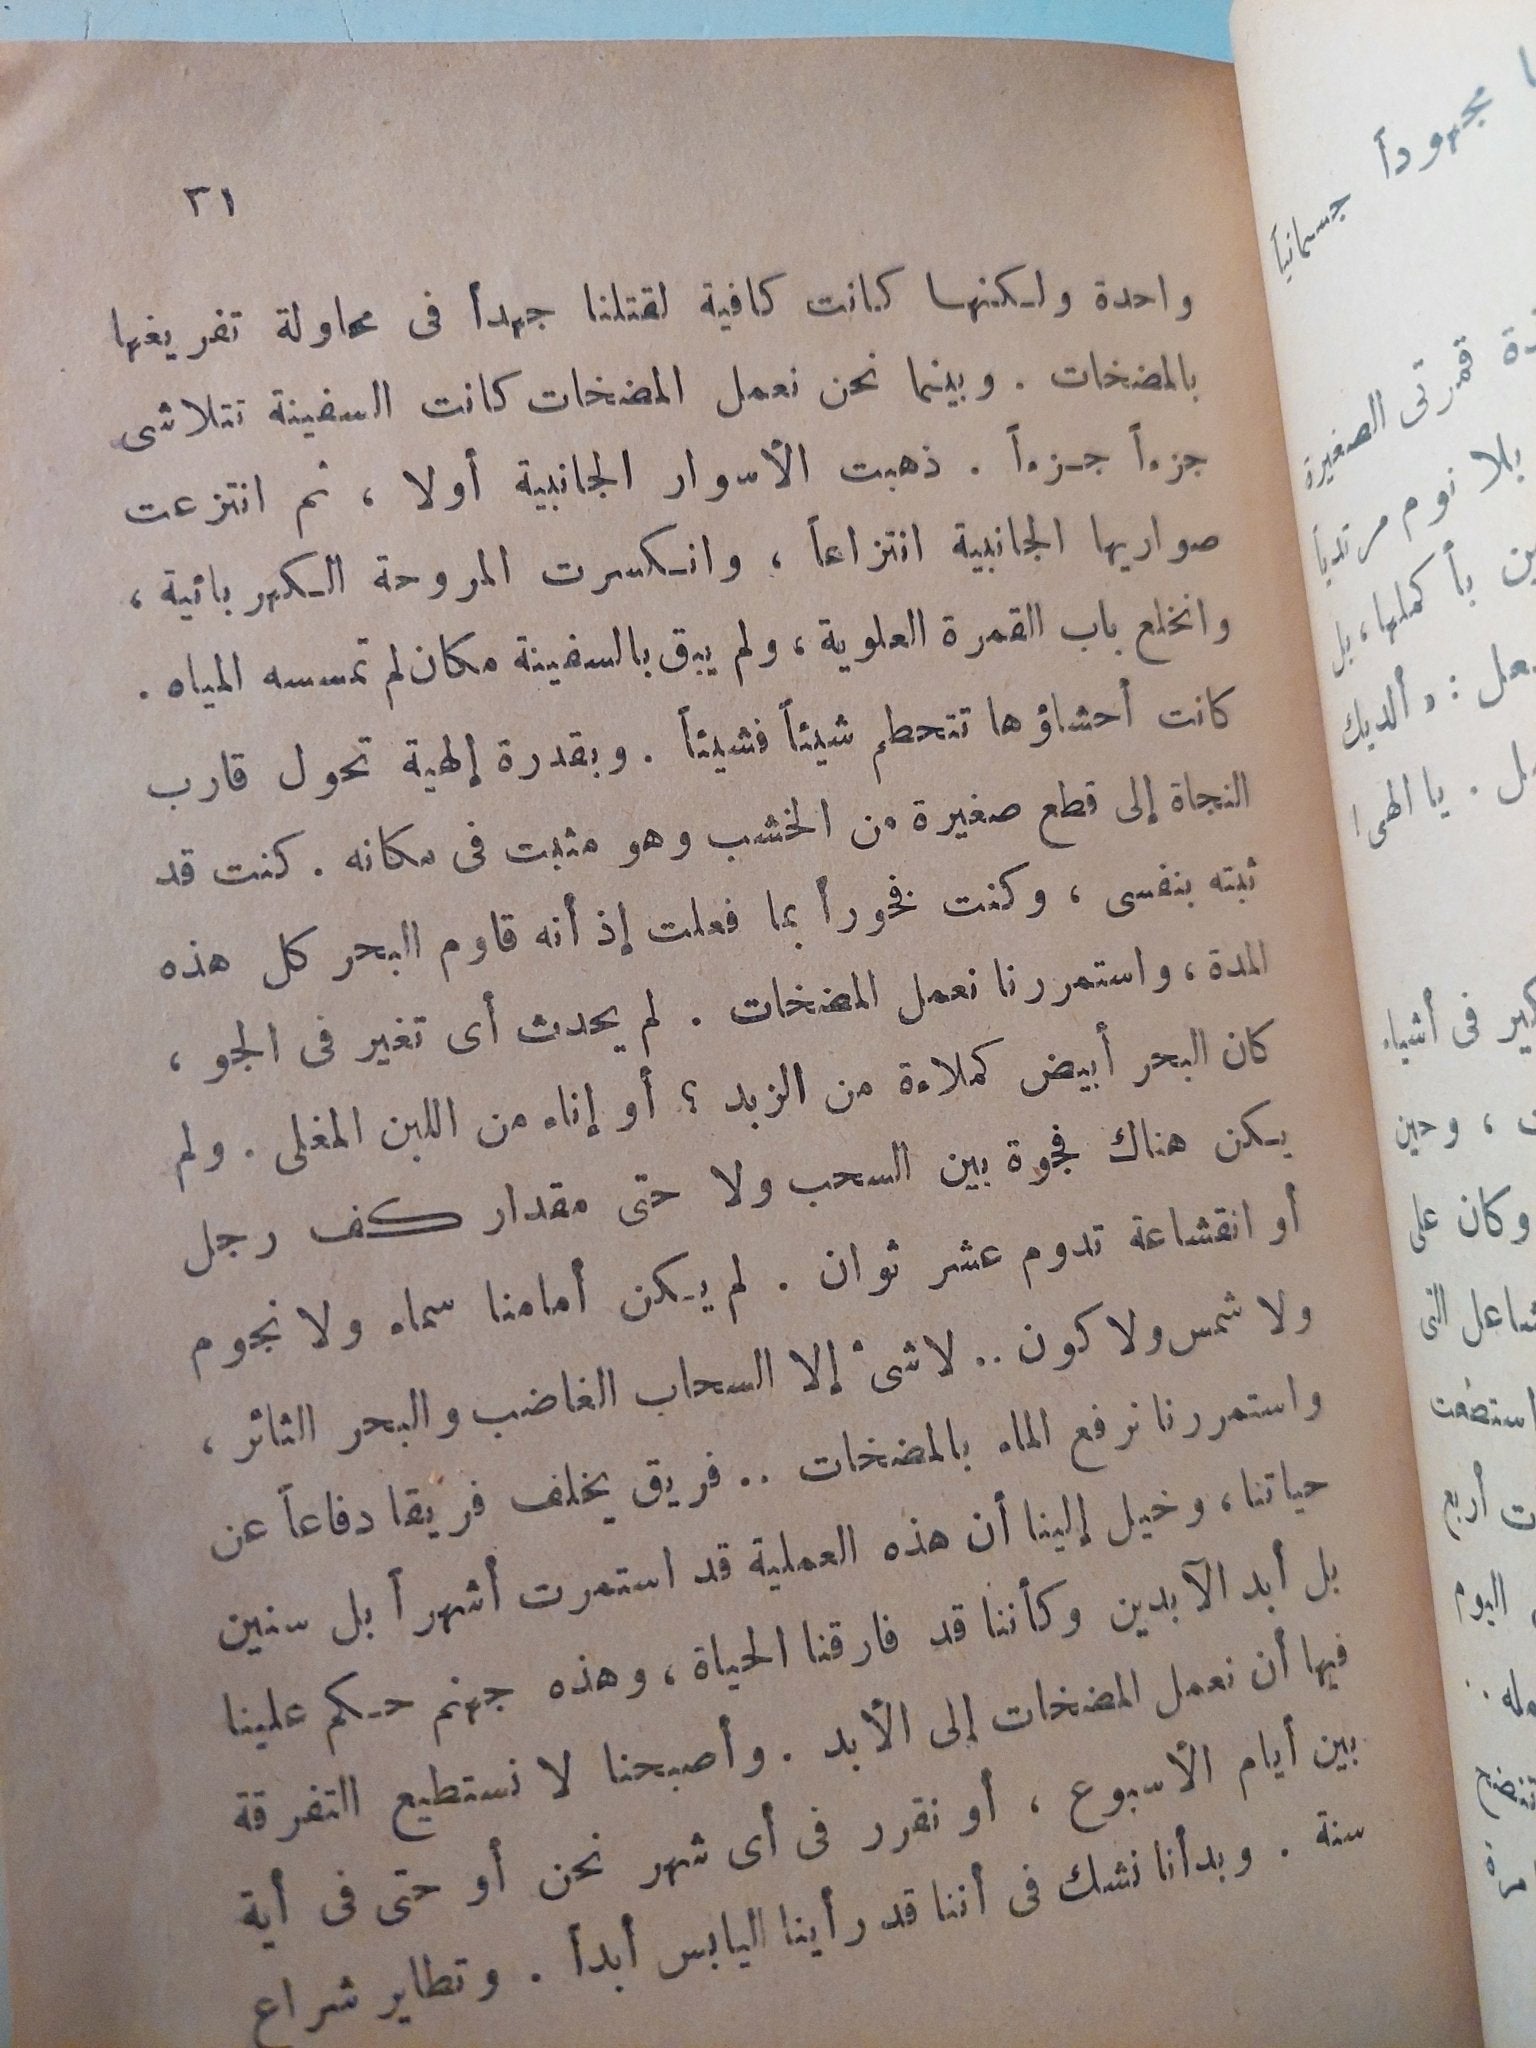 ٢١
واحدة ولكنها كانت كافية لقتلنا جهداً فى محاولة تفريغها
بالمضخات . وبينما نحن نعمل المضخات كانت السفينة تتلاشى
جزءاً جزءاً . ذهبت الأسوار الجانبية أولا ، ثم انتزعت
صواريها الجانبية انتزاعاً ، وانكسرت المروحة الكهربائية ،
وانخلع باب القمرة العلوية ، ولم يبق بالسفينة مكان لم تمسسه المياه .
كانت أحشاؤها تتحطم شيئاً فشيئاً . وبقدرة إلهية تحول قارب
النجاة إلى قطع صغيرة من الخشب وهو مثبت فى مكانه . كنت قد
ثبته بنفسى ، وكنت فخوراً بما فعلت إذ أنه قاوم البحر كل هذه
المدة ، واستمررنا نعمل المضخات . لم يحدث أى تغير فى الجو ،
كان البحر أبيض كملاءة من الزبد ؟ أو إناء من اللبن المغلى . ولم
يكن هناك فجوة بين السحب ولا حتى مقدار كف رجل
أو انقشاعة تدوم عشر ثوان . لم يكن أمامنا سماء ولا نجوم
ولا شمس ولا كون .. لا شىء إلا السحاب الغاضب والبحر الثائر ،
واستمررنا نرفع الماء بالمضخات .. فريق يخلف فريقا دفاعاً عن
حياتنا ، وخيل إلينا أن هذه العملية قد استمرت أشهراً بل سنين
بل أبد الآبدين وكأننا قد فارقنا الحياة ، وهذه جهنم حكم علينا
فيها أن نعمل المضخات إلى الأبد . وأصبحنا لا نستطيع التفرقة
بين أيام الأسبوع ، أو نقرر فى أى شهر نحن أو حتى فى أية
سنة . وبدأنا نشك فى أننا قد رأينا اليابس أبداً . وتطاير شراع
مجهوداً جسمانياً
قمرتى الصغيرة
بلا نوم مرتدياً
بأكملها ، بل
: « ألديك
. يا الهى !
فى أشياء
، وحين
وكان على
التى
استضفت
أربع
اليوم
تنضح
مرة